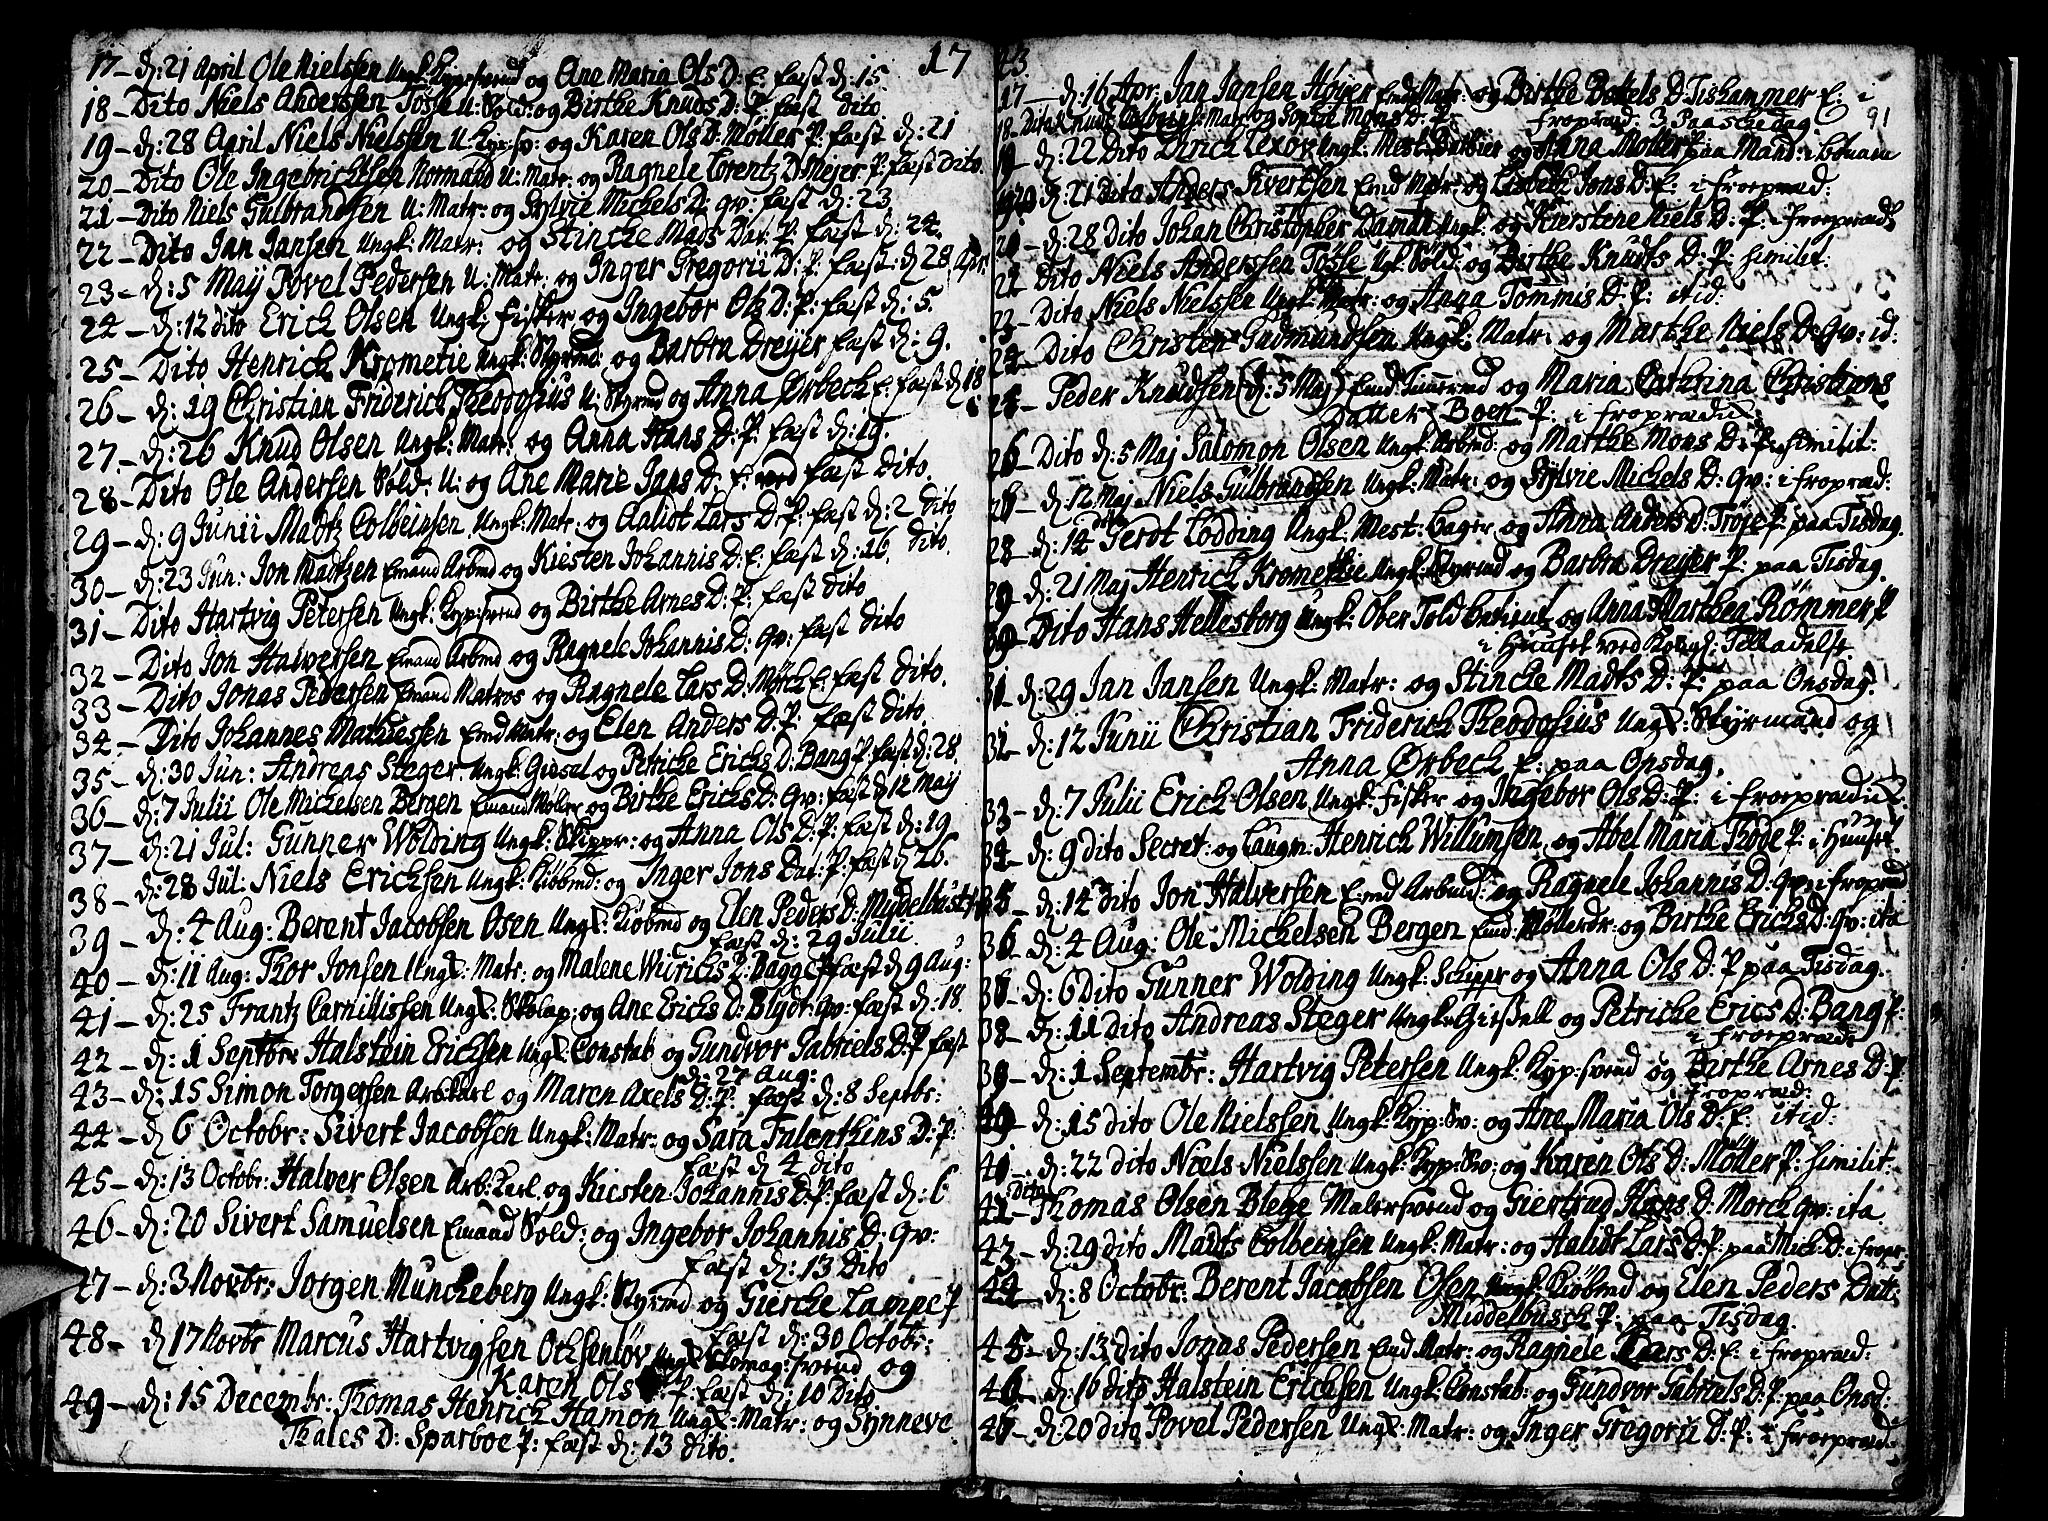 17
17 - d: 21 April Ole Nielssen Ungk: Kypsvend og Ane Maria Ols D: E. fæst d: 15.
18 - Dito Niels Anderssen Tøsse U: Sold: og Birthe Knuds D: P. fæst dito
19 - d: 28 April Niels Nielssen U: Kyp:sv: og Karen Ols D: Møller P: fæst d: 21
20 - Dito Ole Ingebrichtsen Normand U: Matr: og Ragnele Lorentz D: Mejer P: fæst Dito.
21 - Dito Niels Gulbrandsen U: Matr: og Sylvie Michels D: gv: fæst d: 23
22 - Dito Jan Jansen Ungk: Matr: og Stincke Mads Dat: P. fæst d: 24.
23 - d: 5 Maij Povel Pedersen U: Matr: og Inger Gregorii D: P: fæst: d: 28 Apr:
24 - d: 12 dito Erich Olsen Ungk: Fisker og Ingebor Ols D: P: fæst d: 5.
25 - Dito Henrich Krometie Ungk: Styrmd: og Barbra Dreijer fæst d: 9.
26 - d: 19 Christian Friderich Theodosius U: Styrmd og Anna Ørbeck E. fæst d: 18
27 - d: 26 Knud Olsen Ungk: Matr: og Anna Hans D: P: fæst d: 19.
28 - Dito Ole Andersen Sold: U: og Ane Marie Jans D: E: ved fæst dito.
29 - d: 9 Junii Madtz Colbeinsen Ungk: Matr: og Aalidt Lars D: P: fæst d: 2 dito
30 - d: 23 Jun: Jon Madtzen Emand Arbmd og Kiesten Johannis D: E: fæst d: 16. dito.
31 - Dito Hartvig Petersen Ungk: Kyp:svend og Birthe Arnes D: P: fæst dito
32 - Dito Jon Halversen Emand Arbmd og Ragnele Johannis D: gv: fæst dito
33 - Dito Jonas Pedersen Emand Matros og Ragnele Lars D: Mørch E: fæst dito.
34 - Dito Johannes Mathiessen Emd Matr: og Elen Anders D: P: fæst dito.
35 - d: 30 Jun: Andreas Steger Ungk: Giesel og Petricke Erichs D: Bang P: fæst d: 28.
36 - d: 7 Julii Ole Michelsen Bergen Emand Møller og Birthe Erichs D: gv: fæst d 12 Maij
37 - d: 21 Jul: Gunner Wolding Ungk: Skippr: og Anna Ols D: P: fæst d: 19
38 - d: 28 Jul: Niels Erichsen Ungk: Kiøbmd: og Inger Jons Dat: P: fæst d 26.
39 - d: 4 Aug: Berent Jacobsen Osen Ungk: Kiøbmd og Elen Peders D: Mydelbusch
fæst d: 29 Julii.
40 - d: 11 Aug: Thor Jonsen Ungk: Matr: og Malene Wiirichs D: Bagge P fæst d 9 Aug:
41 - d: 25 Frantz Carnillissen Ungk: Skolap: og Ane Erichs D: Blydt gv: fæst d: 18.
42 - d: 1 Septbr: Halstein Erichsen Ungk: Constab og Gundvor Gabriels D: P fæst
d: 27 Aug:
43 - d: 15 Simon Torgersen Arbkarl og Maren Axels D: P. fæst d: 8 Septbr:
44 - d 6 Octobr: Sivert Jacobsen Ungk: Matr: og Sara Falenthins D: P:
fæst d 4 dito
45 - d: 13 Octobr: Halver Olsen Arb:karl og Kiesten Johannis D: P: fæst d: 6
46 - d: 20 Sivert Samuelsen Emand Sold: og Ingebor Johannis D: gv:
fæst d: 13 Dito
47 - d: 3 Novbr: Jørgen Münckeberg Ungk: Styrmd og Giercke Lampe P
fæst d: 30 Octobr:
48 - d 17 Novbr Marcus Hartvigsen Ochsenløv Ungk: Skomag: svend og
Karen Ols P: fæst d: 10 Dito
49 - d: 15 Decembr: Thomas Henrich Hamon Ungk: Matr: og Synneve
Thales D: Sparboe P: fæst d: 13 dito.
43.
91
17 - d: 16 Apr: Jan Jansen Høyer Emd Matr: og Birthe Botels D: Tishammer E: i
Fropræd: 3 Paaschedag
18 - Dito Knud Colbeins: Matr og Sophie Mons D: P.
19 - d: 22 Dito Dirich Lexow Ungk: Mest: Barbier og Anna Møller P: paa Mand: i
20 d: 21 dito Anders Sivertsen Emd Matr: og Lisbeth Jons D: E: i froepræd:
21 - d: 28 Dito Johan Christopher Daman Ungk: og Kierstine Niels D: P: i froepræd:
22 Dito Niels Anderssen Tøsse Ugk: Sold: og Birthe Knuds D: P: similit:
23 - Dito Niels Nielssen Ungk: Matr: og Anna Tommis D: P: itid:
24 - Dito Christen Gudmundsen Ungk: Matr: og Marthe Niels D: Gv: id:
25 - Peder Knudsen (d: 5 Maj) Emd Timmrmd og Maria Cathrina Christiens
Datter Boen P: i fropræd:
26 - Dito d: 5 Maj Salomon Olsen Ungk: Arbmd: og Marthe Mons D: P: similit:
d: 12 Maj Niels Gulbrandsen Ungk: Matr: og Sylvie Michels D: Gv: i fropræd:
28 - d: 14 dito Gerdt Lodding Ungk: Mest: Bager og Anna Anders D: Trøje P: paa Tisdag.
29 - d: 21 Maj Henrich Kromethie Ungk: Styrmd og Barbra Dreijer P: paa Tisdag.
30 - Dito Hans Hellesborg Ungk: Ober Told betient og Anna Marthea Rømmer P
i Huuset ved Kongl: Tilladelse
31 - d: 29 Jan Jansen Ungk: Matr: og Stincke Madts D: P: paa Onsdag.
32 - d: 12 Junii Christian Friderich Theodosius Ungk: Styrmand og
Anna Ørbech E: paa Onsdag.
33 - d: 7 Julii Erich Olsen Ungk: Fisker og Ingebor Ols D: P: i froepræd:
34 d: 9 dito Secret: og Laugm: Henrich Willumsen og Abel Maria Thode P: i Huuset
35 - d: 14 dito Jon Halversen Emd Arbmd: og Ragnele Johannis D: gv: i fropræd
36 - d: 4 Aug: Ole Michelsen Bergen Emd: Møllerdr: og Birthe Erichs D: gv: ita
37 - d: 6 Dito Gunner Wolding Ungk: Schippr og Anna Ols D: P paa Tisdag.
38 - d: 11 Dito Andreas Steger Ungk: Giesell og Petriche Erics D: Bang P:
i froepræd:
39 - d: 1 Septembr: Hartvig Petersen Ungk: Kyp:svend og Birthe Arnes D: P
i fropræd:
40 - d: 15 dito Ole Nielssen Ungk: Kyp: Sv: og Ane Maria Ols D: E. itid:
41 - d: 22 dito Niels Nielssen Ungk: Kyp: Sv: og Karen Ols D: Møller P: similit:
42 - Dito Thomas Olsen Blege Malersvend og Giertrud Hans D: Morch gv: ita
43 - d: 29 dito Madts Colbeinsen Ungk: Matr: og Aalidt Lars D: P: paa Mich: D: i fropr:
44 - d: 8 Octobr: Berent Jacobsen Osen Ungk: Kiøbmd og Elen Peders Dat:
Middelbusch P: paa Tisdag.
45 - d: 13 dito Jonas Pedersen Emd Matr: og Ragnele Lars D: E. i fropræd:
46 - d: 16 dito Halstein Erichsen Ungk: Constab: og Gundvor Gabriels D: P: paa Onsd:
d: 20 dito Povel Pedersen Ungk: Matr: og Inger Gregorii D: P: i froepræd: